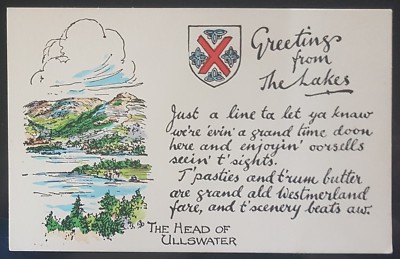 Greetings
from
The Lakes
Just a line ta let ya knaw
we're 'evin' a grand time doon
here and enjoyin' oorsells
seein' t' sights.
T'pasties and t'rum butter
are grand ald Westmerland
fare, and t'scenery beats aw.
THE HEAD OF
ULLSWATER